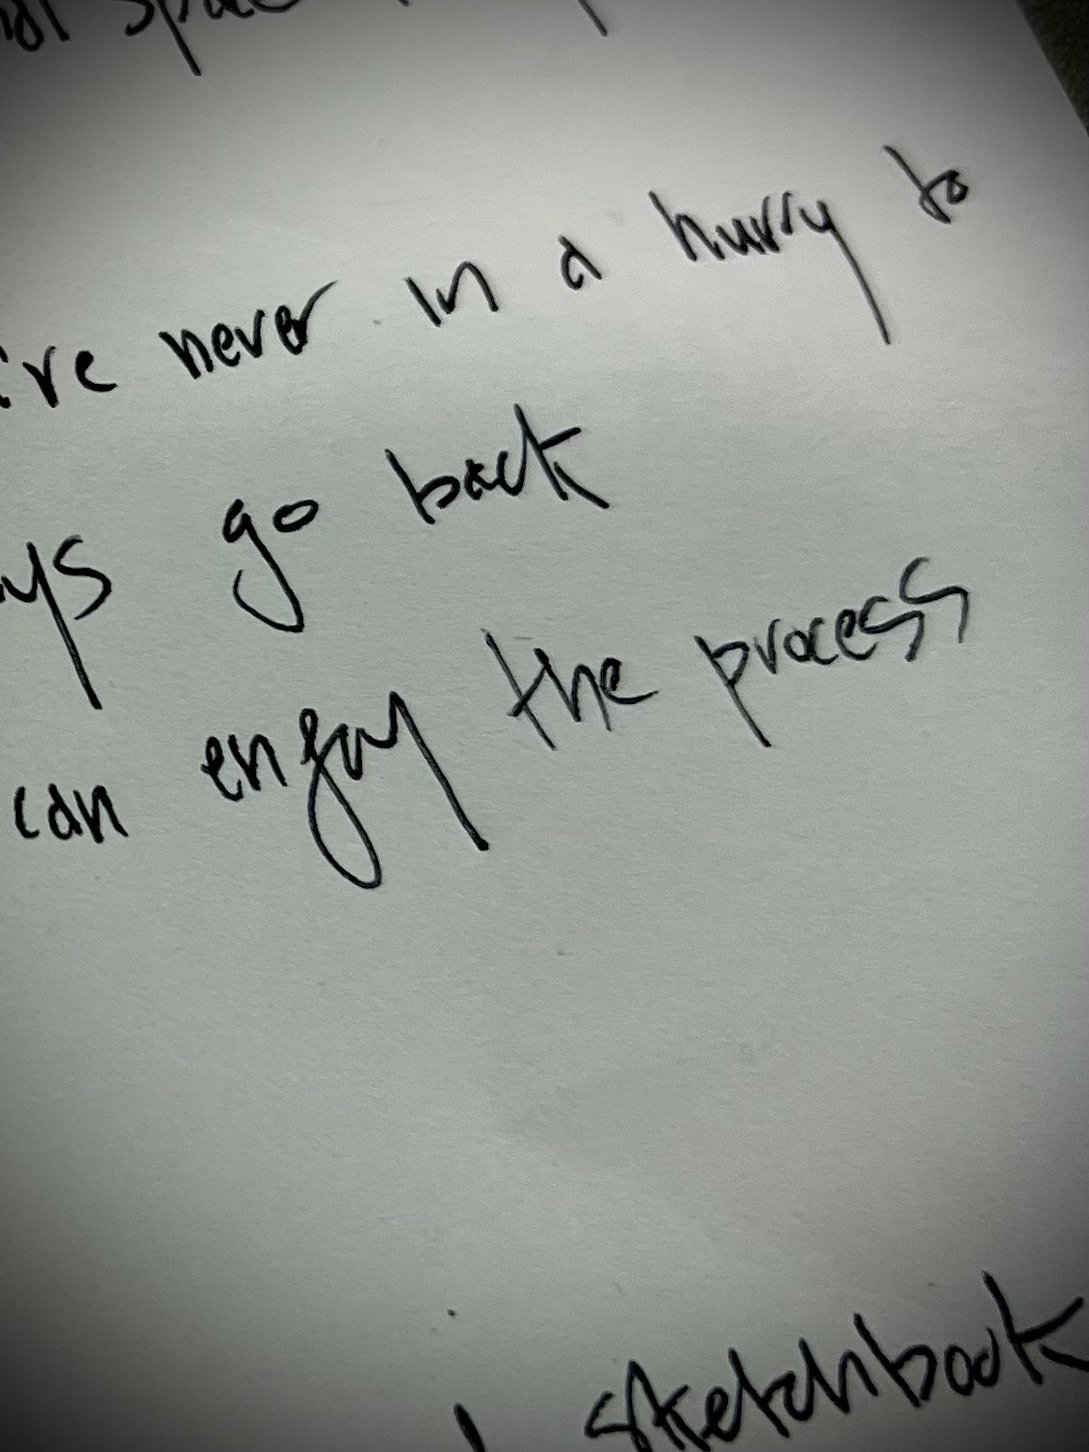 space
're never in a hurry to
ys go back
can enjoy the process
sketchbook